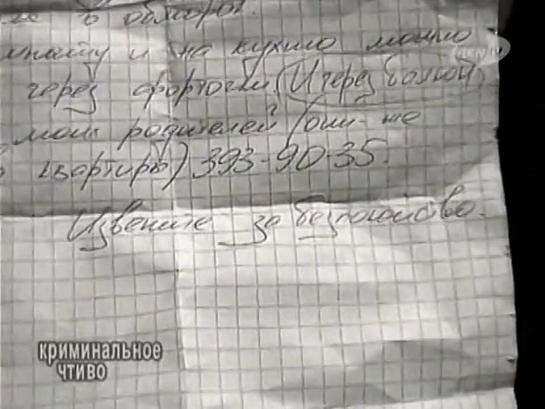 в обморок.
мнату и на кухню можно
через форточки (И через балкон)
моих родителей (они же
квартиры) 393-90-35.
Извените за беспокойство.
криминальное
чтиво